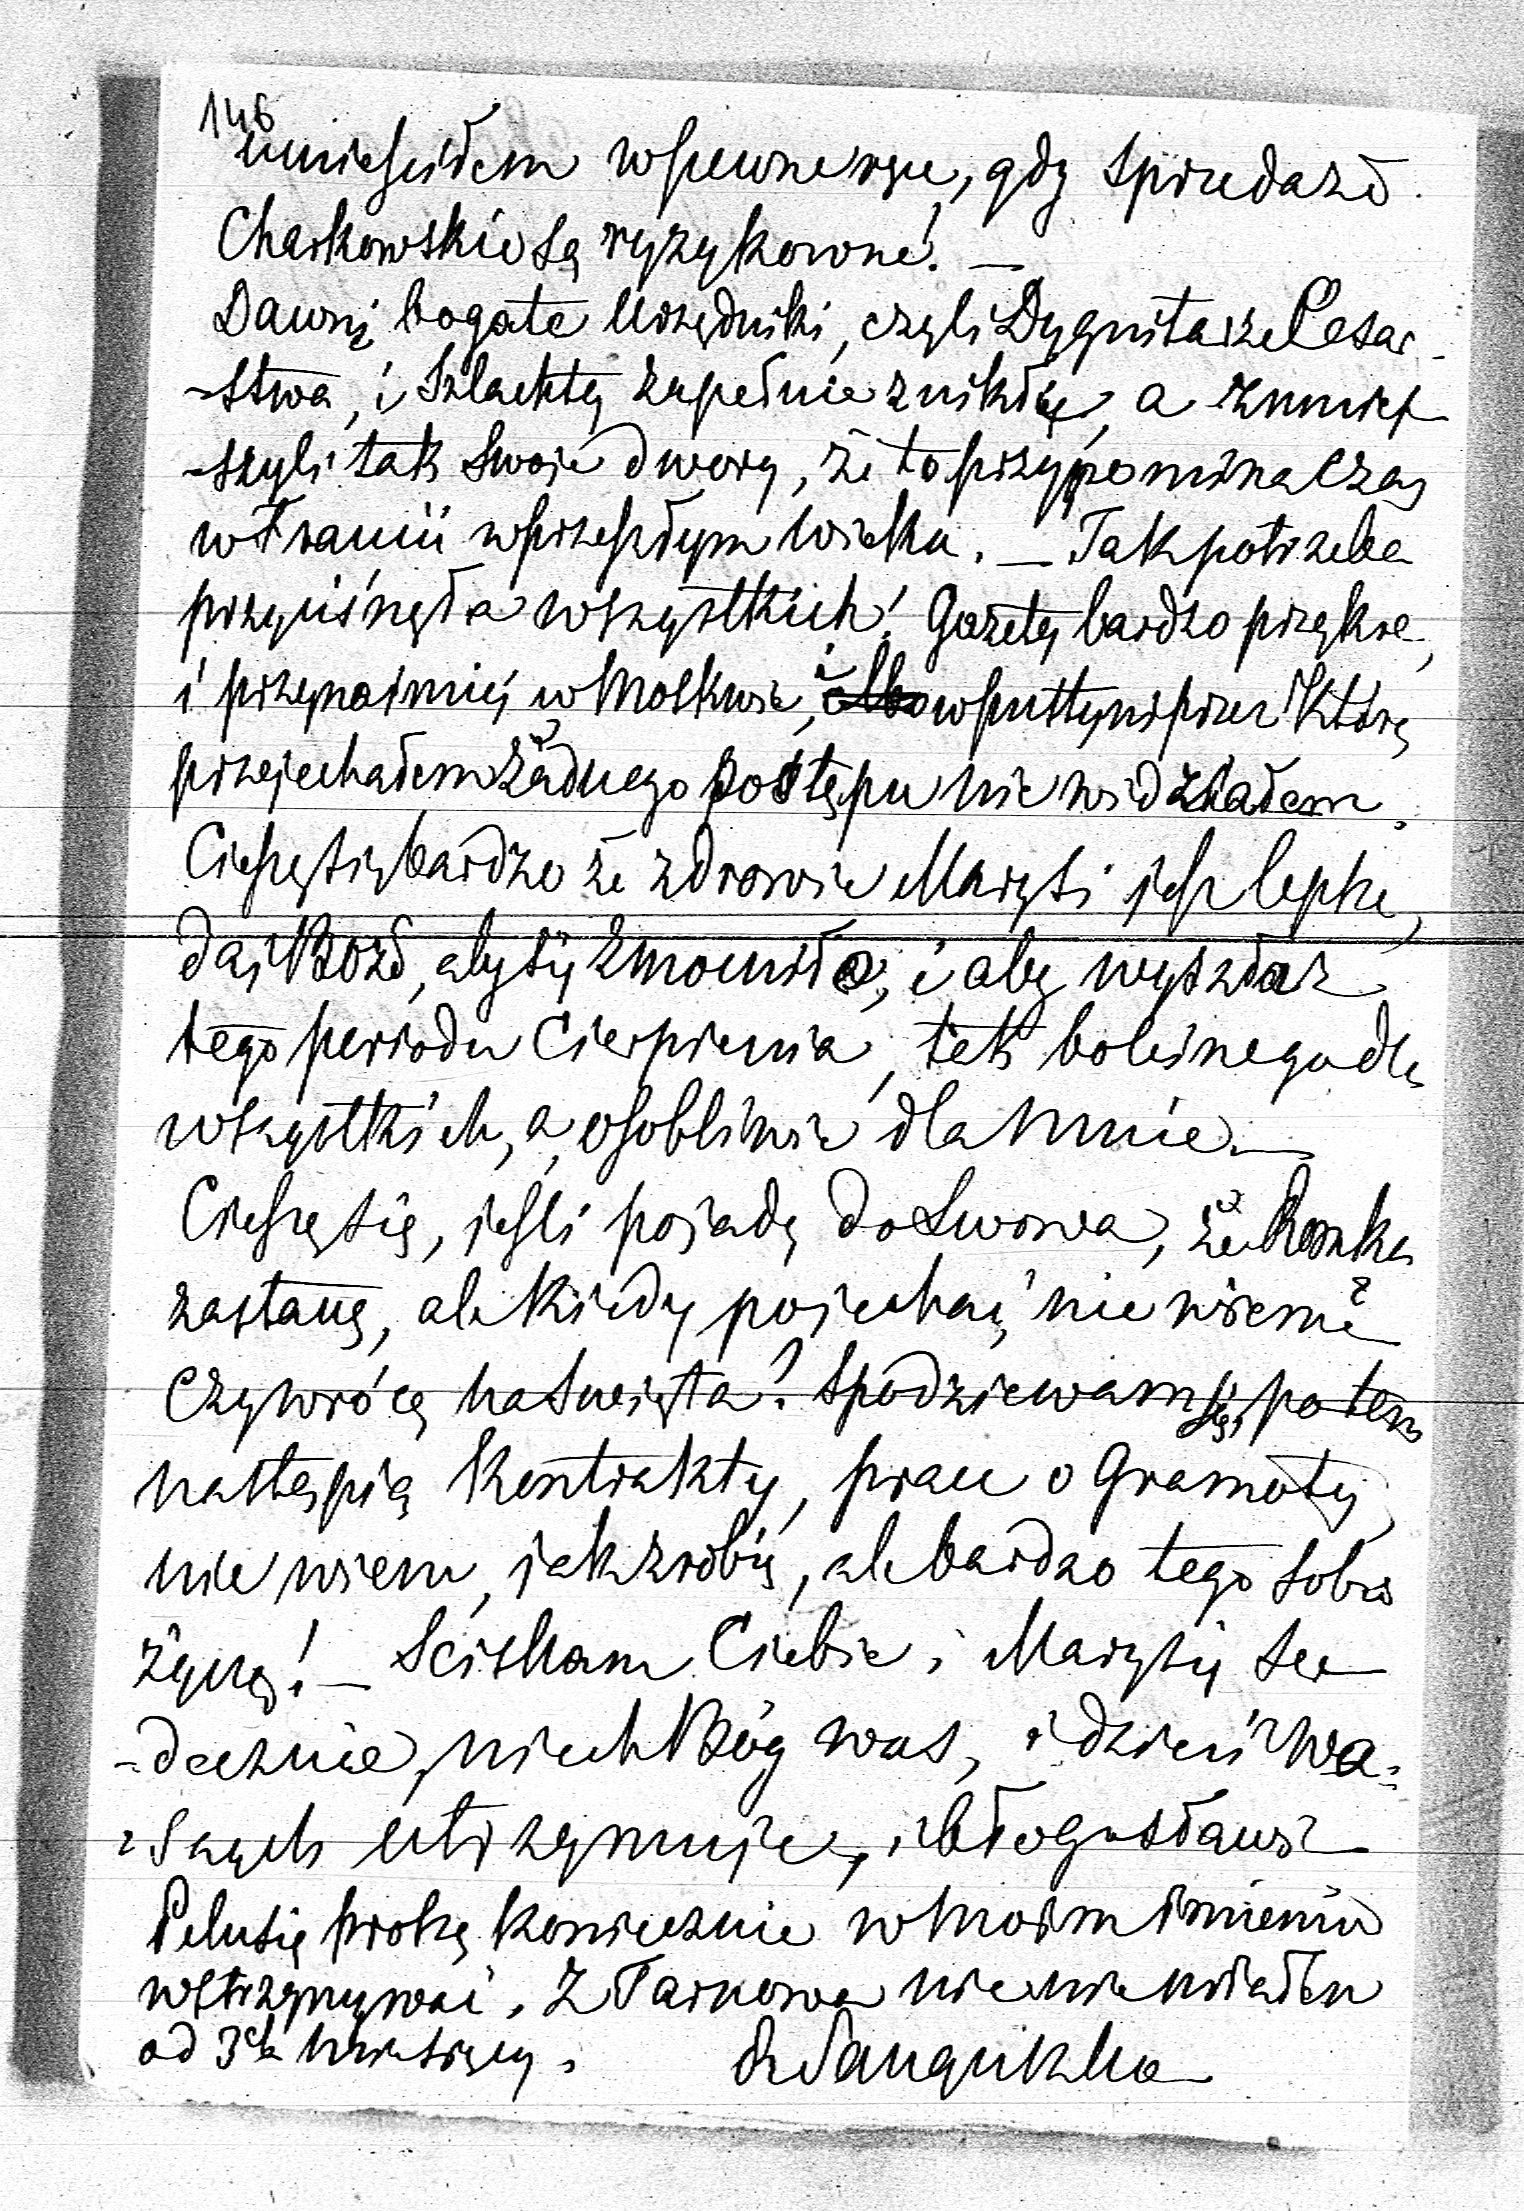 146
umieściłem w pewne ręce, gdy sprzedaże
Charkowskie są ryzykowne. —
Dawni bogate Urzędniki, czyli Dygnitarze Cesar-
-stwa, i Szlachta zupełnie znikłą, a zmniej-
-szyli tak swoje dwory, że to przypomina czasy
w Francii w przeszłym wieku. — Tak potrzeba
przycisnęła wszystkich! Gazety bardzo przykre,
i przynajmniej w Moskwie, i w puttyni przez którę
przejechałem żadnego postępu nie widziałem.
Cieszę się bardzo że zdrowie Marysi jest lepsze,
daj Boże, aby się zmocniła, i aby wyszła z
tego periodu Cierpienia, tak bolesnego dla
wszystkich, a osobliwie dla mnie. —
Cieszę się, jeśli pojadę do Lwowa, że Romka
zastanę, ale kiedy pojechać, nie wiem
czy wrócę na Święta? Spodziewam się, potem
nastąpią Kontrakty, prace o Gramoty
nie wiem, jak zrobię, ale bardzo tego sobie
życzę! — Sciskam Ciebie i Marysię ser-
-decznie, niech Bóg was, i dzieci wa-
-szych utrzymuje, i błogosławi
Pelusię proszę koniecznie w moim imieniu
wstrzymywać. Z Tarnowa nic nie miałem
od 3ch miesięcy. R Sanguszko